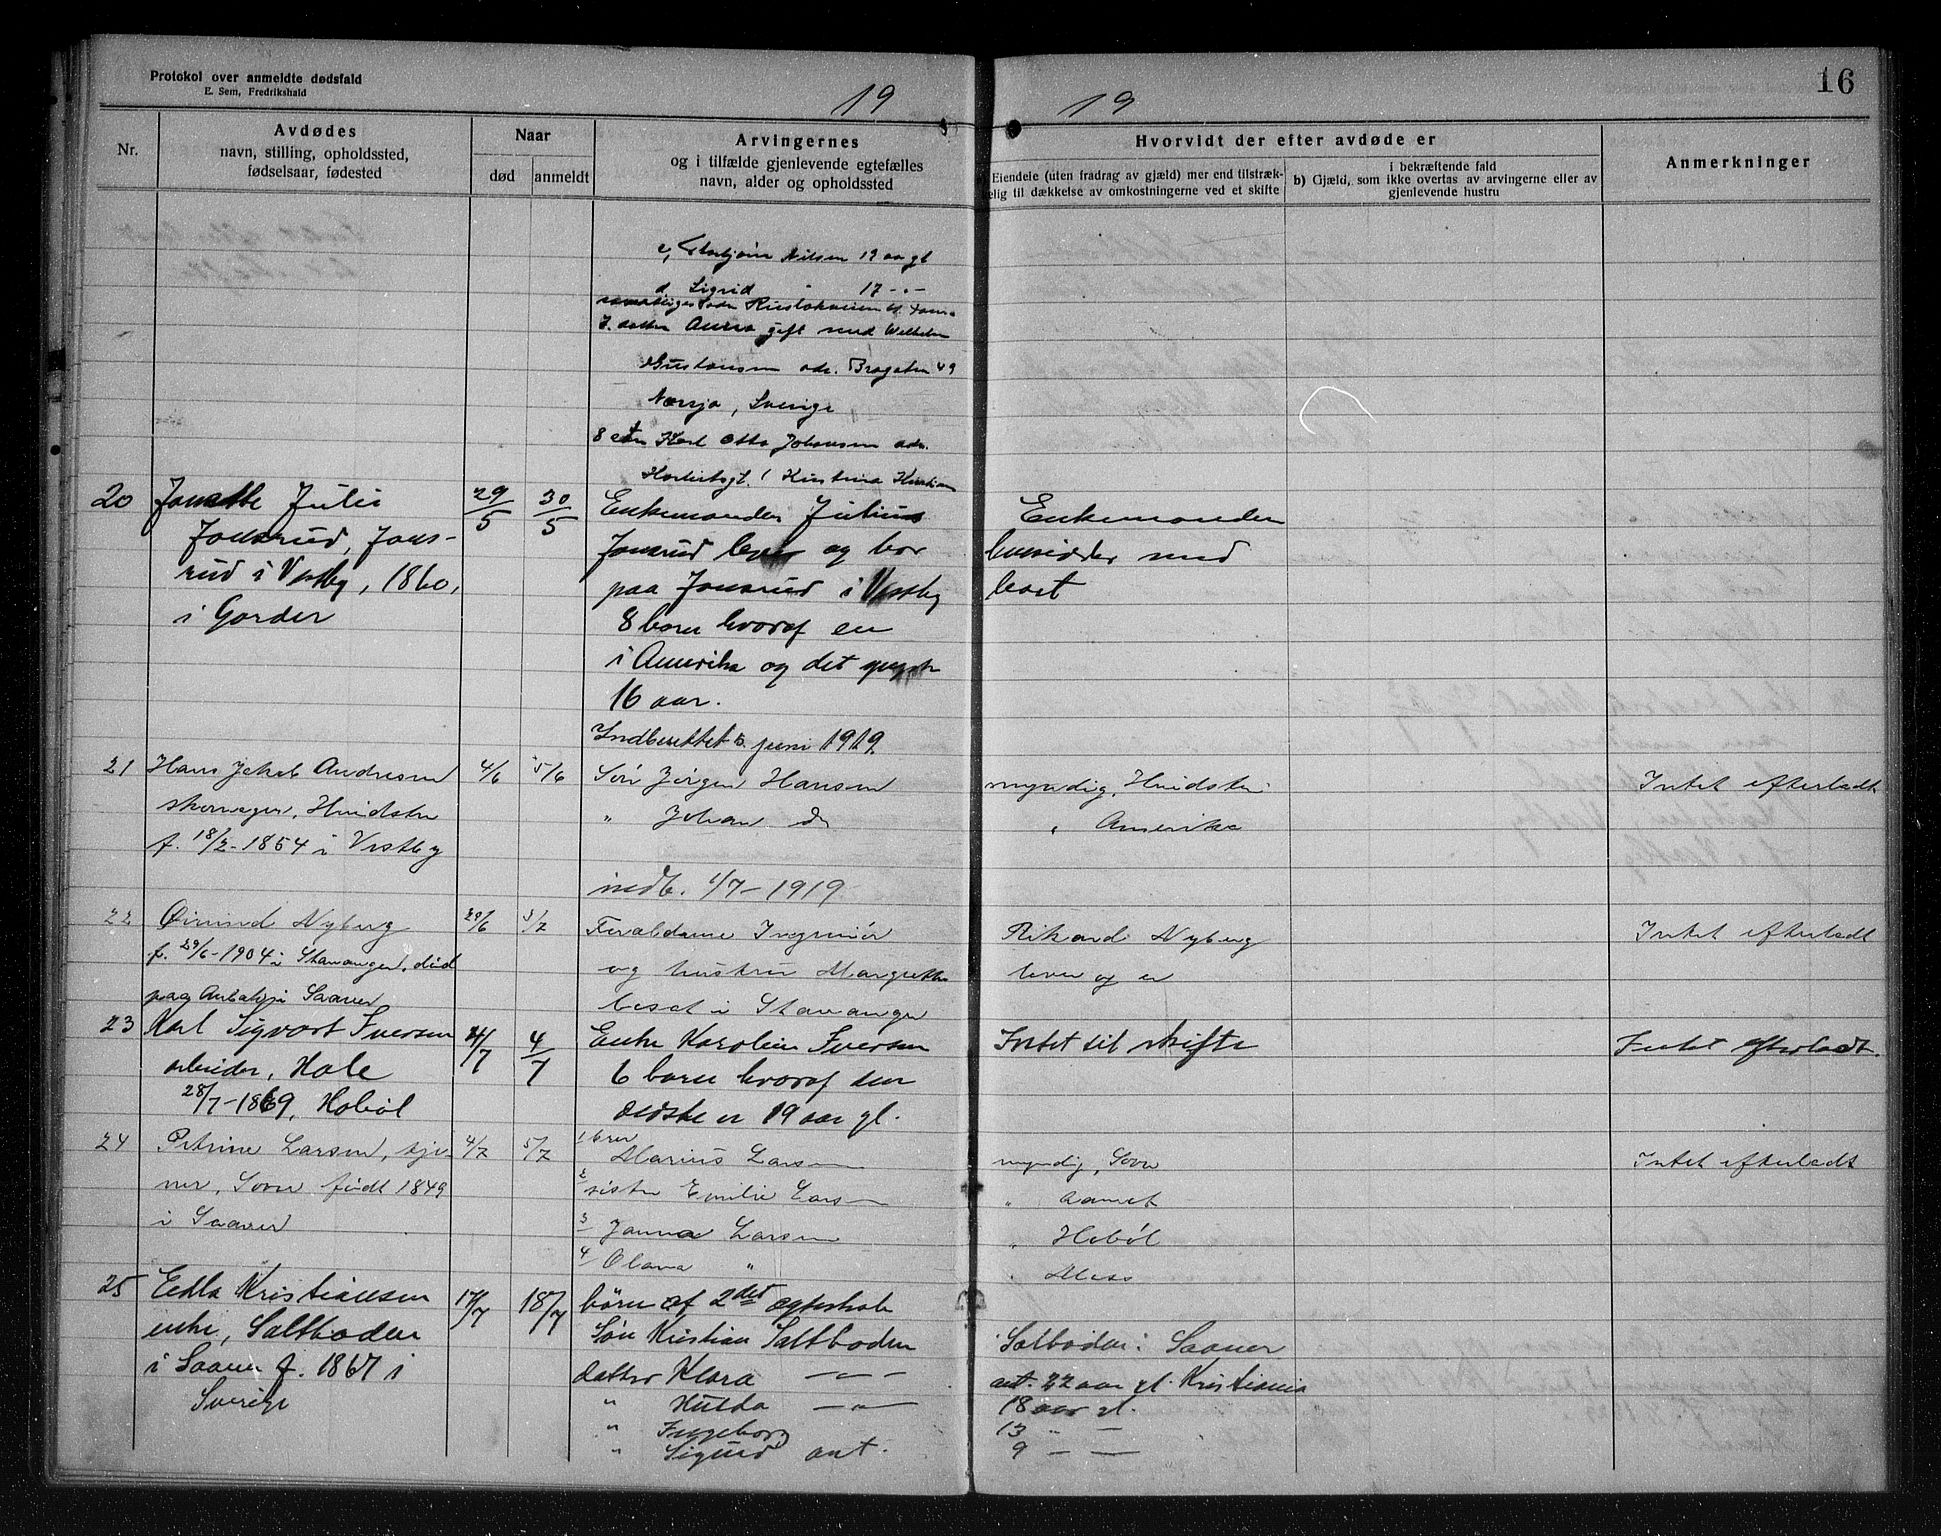 Protokol over anmeldte dødsfald
E. Sem, Fredrikshald
19
19
16
Nr.
Avdødes
navn, stilling, opholdssted,
fødselsaar, fødested
Naar
død
anmeldt
Arvingernes
og i tilfælde gjenlevende egtefælles
navn, alder og opholdssted
Hvorvidt der efter avdøde er
Eiendele (uten fradrag av gjæld) mer end tilstræk-
elig til dækkelse av omkostningerne ved et skifte
i bekræftende fald
b) Gjæld, som ikke overtas av arvingerne eller av
gjenlevende hustru
Anmerkninger
c, Nilsen 19 aa gl
d Sigrid " 17 - " -
7. datter Anna gift med Wilhelm
Gustavsen adr. 49
, Sverige
8 Karl Otto Johansen adr.
Kristina
20 Julie
Jonsrud, Jons-
rud i Vestby, 1860,
i Garder
29/5
30/5
Enkemanden Julius
Jonsrud lever og bor
paa Jonsrud i Vestby
8 barn hvoraf en
i Amerika og det yngste
16 aar.
Indberettet 5. juni 1919.
Enkemanden
hensidder med
boet
21 Hans Jakob Andresen
Hvidsten
f. 18/2-1854 i Vestby
4/6
5/6
Søn Jørgen Hansen
" Johan do
indb. 1/7-1919
myndig, Hvidsten
" Amerika
Intet efterladt
22 Øivind Nyberg
f. 29/6-1904 i Stavanger, død
paa i Saaner
29/6
3/7
Forældrene Ingeniør
og hustru Margrethe
bosat i Stavanger
Rikard Nyberg
lever og er
Intet efterladt
23 Karl Sigvart Iversen
arbeider, Hole
28/7-1869, Hobøl
4/7
Enke Karoline Iversen
6 barn hvoraf den
ældste er 19 aar gl.
Intet til skifte
Intet efterladt.
24 Petrine Larsen, tje-
ner, Sovn født 1849
i Saaner
4/7
5/7
1 bror
Marius Larsen
2 søster Emilie Larsen
3 Janna Larsen
4 Olava "
myndig, Sovn
" samst
" Hobøl
" Moss
Intet efterladt
25 Edla Kristiansen
enke, Saltboden
i Saaner f. 1867 i
Sverige
17/7
18/7
børn af 2det ægteskab
Søn Kristian Saltboden
datter Klara — " —
" Hulda — " —
" Ingeborg
" Sigurd
Saltboden i Saaner
22 aar gl. Kristiania
18 aar gl.
13 " —
9 — —